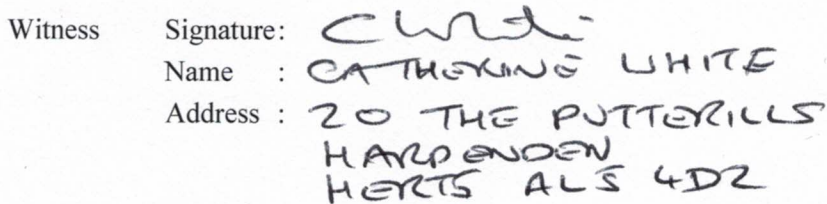 Witness Signature: CWhite
Name : CATHERINE WHITE
Address : 20 THE PUTTERILLS
HARPENDEN
HERTS AL5 4DZ